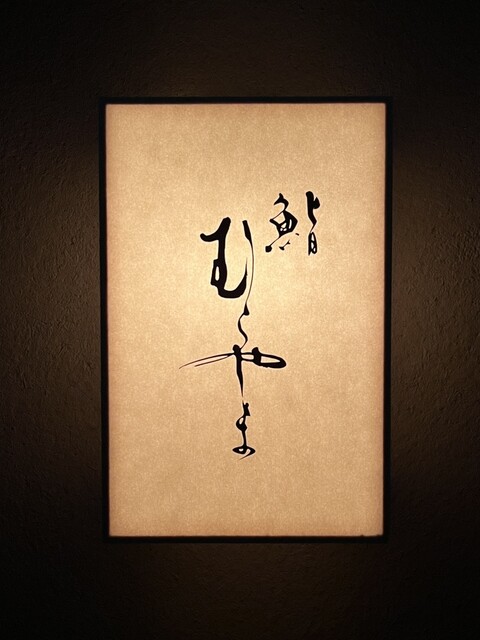 鮨
むらやま